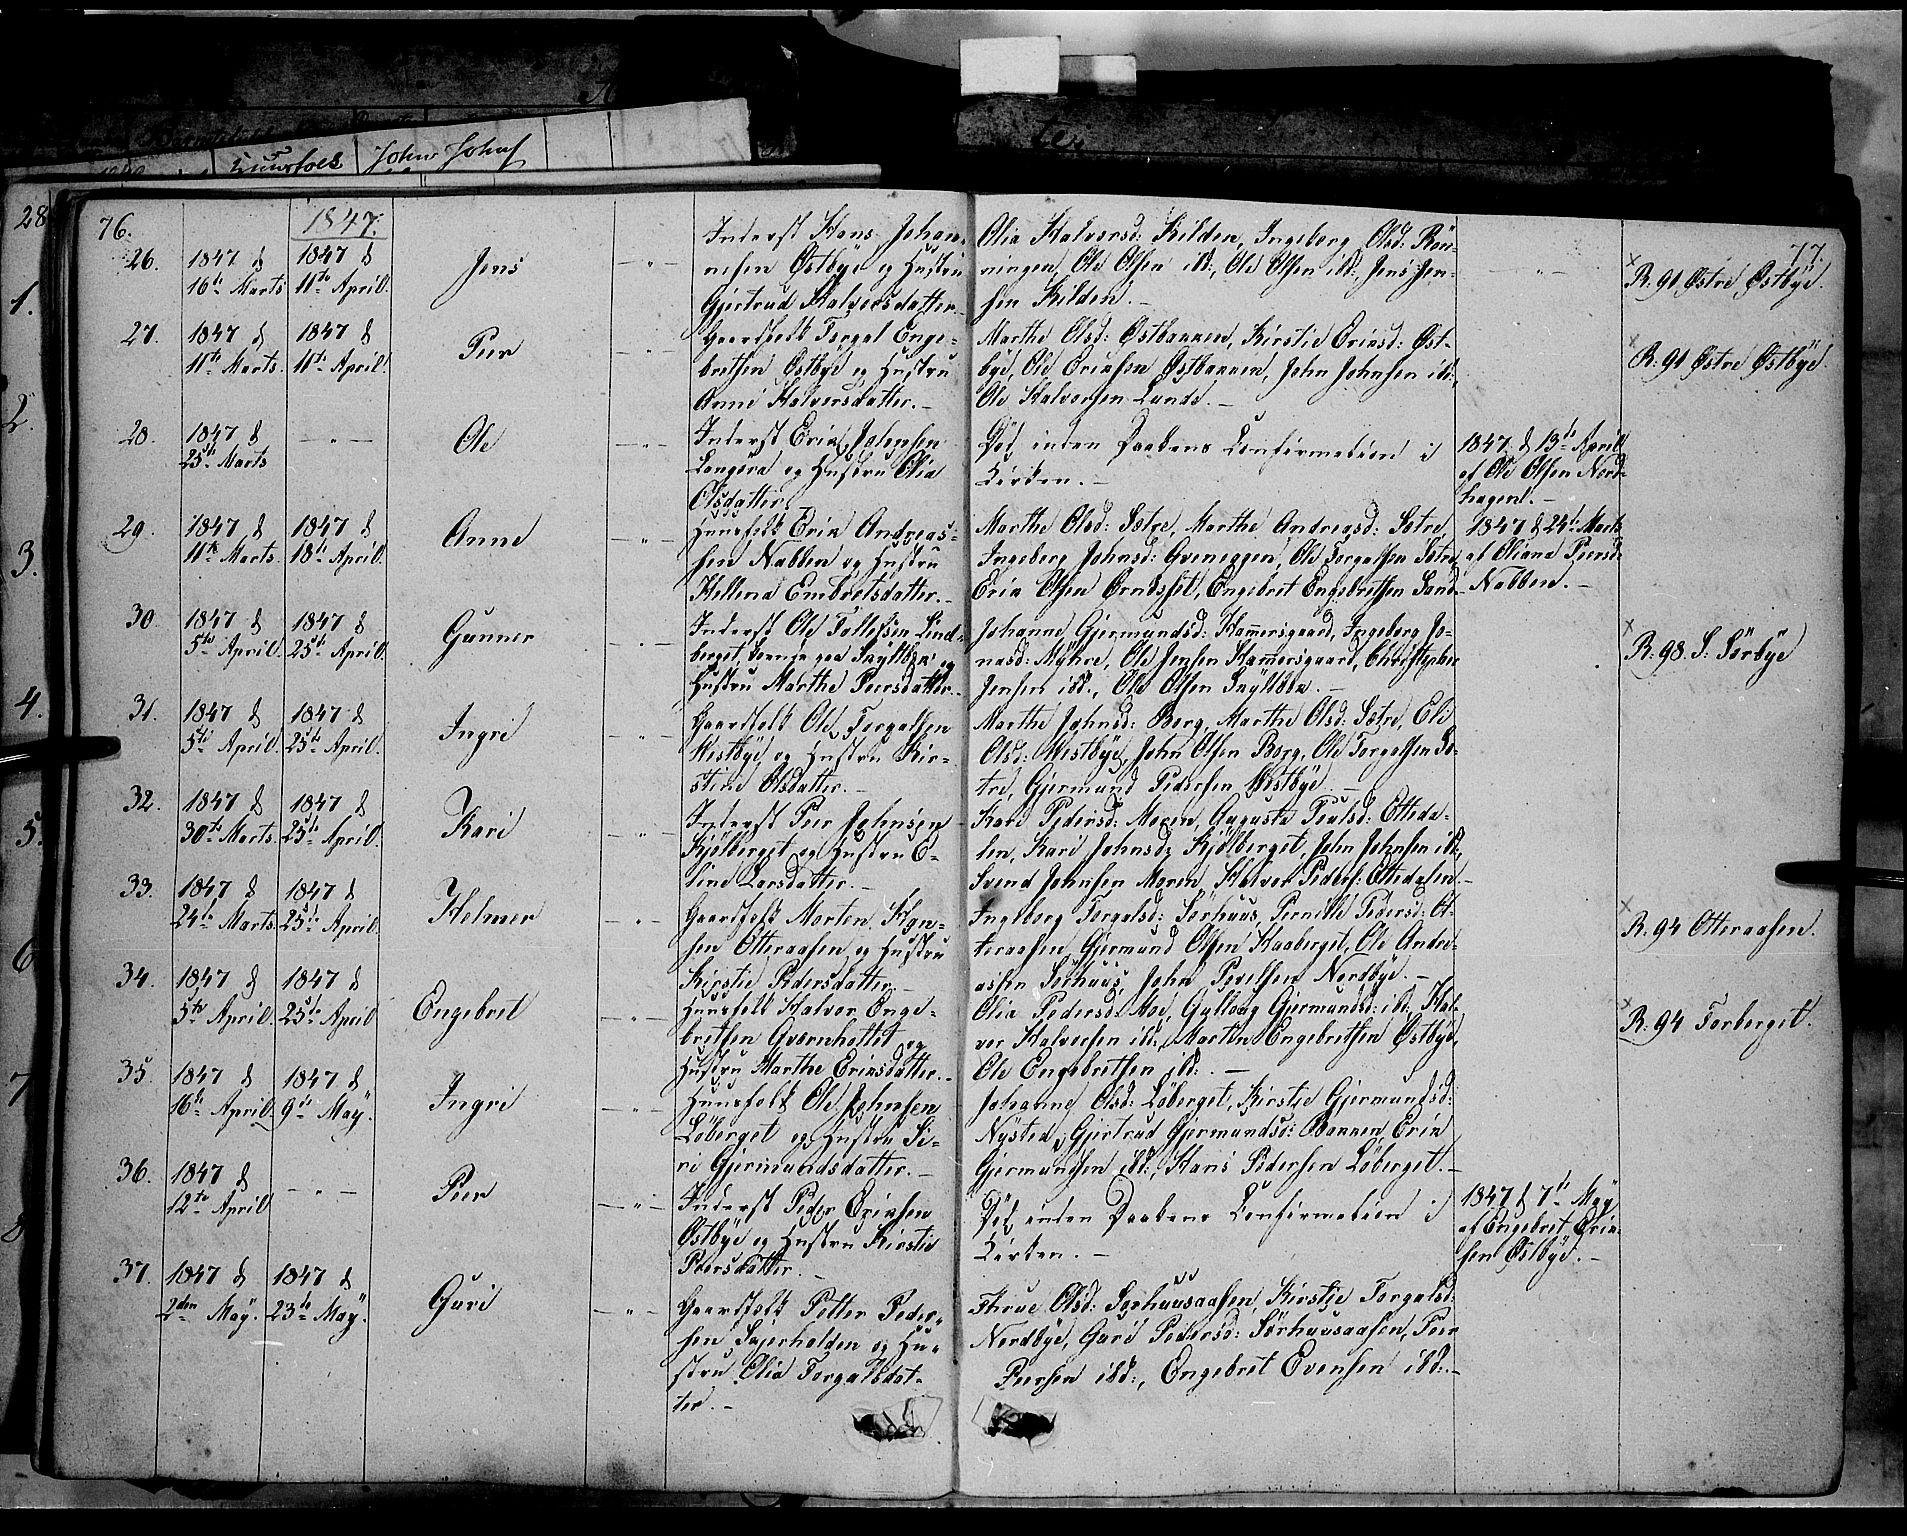 John Johns
28
76.
1847.
77.
26.
1847 d
16de Marts
1847 d
11te April.
Jens
— " —
Inderst Hans Johan-
nesen Østbye og Hustru
Gjertrud Halvorsdatter.
Olia Halvorsd: Kilden, Ingeborg Olsd: Rön-
ningen, Ole Olsen ibd:, Ole Olsen ibd:, Jens Jen-
sen Kilden. —
— " —
R. 91 Østre Østbye.
27.
1847 d
11te Marts.
1847 d
11te April.
Peer
— " —
Gaardfolk Torgal Enge-
bretsen Østbye og Hustru
Anne Halvorsdatter. —
Marthe Olsd: Østbakken, Kirstie Eriksd: Øst-
bye, Ole Eriksen Østbakken, John Johnsen ibd:,
Ole Halvorsen Lunde. —
R: 91 Østre Østbye.
28.
1847 d
25de Marts
— " —
Ole
— " —
Inderst Erik Johnsen
Langöra og Hustru Olia
Olsdatter.
Död inden Daabens Confirmation i
Kirken. —
1847 d 13de April
af Ole Olsen Nord-
hagen. —
29.
1847 d
11te Marts.
1847 d
18de April.
Anne
— " —
Huusfolk Erik Andreas-
sen Nabben og Hustru
Hellena Embretsdatter. —
Marthe Olsd: Sætre, Marthe Andreasd: Sætre
Ingeborg Johnsd: Qveneggen, Ole Torgalsen Sætre,
Erik Olsen Örndset, Engebret Engebretsen Sand-
1847 d 24de Marts
af Oliana Peersd:
Nabben. —
30.
1847 d
5te April.
1847 d
25de April.
Gunner
— " —
Inderst Ole Tollefsen Lind-
berget, boende paa Skyltbæk og
Hustru Marthe Peersdatter. —
Johanne Gjermundsd: Hammersgaard, Ingeborg Jo-
nasd: Myhre, Ole Jensen Hammersgaard, Christopher
Jensen ibd:, Ole Olsen Skyltbæk. —
R: 98. S: Sörbye
31.
1847 d
5te April.
1847 d
25de April.
Ingri
— " —
Gaardfolk Ole Torgalsen
Westbye og Hustru Kir-
stine Olsdatter. —
Marthe Johnsd: Berg, Marthe Olsd: Sætre, Eli
Olsd: Westbye, John Olsen Berg, Ole Torgalsen Sæ-
tre, Gjermund Pedersen Westbye. —
32.
1847 d
30te Marts
1847 d
25de April.
Kari
— " —
Inderst Peer Johnsen
Kjölberget og Hustru E-
line Larsdatter. —
Kari Pedersd: Moren, Augusta Paulsd: Elteda-
len, Kari Johnsd: Kjölberget, John Johnsen ibd:,
Svend Johnsen Moren, Halvor Peders: Eltedalen. —
33.
1847 d
24de Marts.
1847 d
25de April.
Helmer
— " —
Gaardfolk Morten Han-
sen Otteraasen og Hustru
Kirstie Pedersdatter. —
Ingeborg Torgalsd: Sörhuus, Pernille Pedersd: Ot-
teraasen, Gjermund Olsen Haaberget, Ole Andre-
asen Sörhuus, John Povelsen Nordbye. —
R. 94 Otteraasen.
34.
1847 d
5te April.
1847 d
25de April
Engebret
— " —
Huusfolk Halvor Enge-
bretsen Qvernhottet og
Hustru Marthe Eriksdatter. —
Olia Pedersd: Moe, Gulloug Gjermundsd: ibd:, Hal-
vor Halvorsen ibd:, Martin Engebretsen Østbye,
Ole Engebretsen ibd:. —
R: 94 Torberget.
35.
1847 d
16de April.
1847 d
9de May.
Ingri
— " —
Huusfolk Ole Johnsen
Löberget og Hustru Si-
ri Gjermundsdatter. —
Johanne Olsd: Löberget, Kirstie Gjermundsd:
Nysted, Gjertrud Gjermundsd: Bakken, Erik
Gjermundsen ibd:, Hans Pedersen Löberget. —
36.
1847 d
12te April
— " —
Peer
— " —
Inderst Peder Eriksen
Østbye og Hustru Kirstie
Peersdatter. —
Död inden Daabens Confirmation i
Kirken. —
1847 d 7de May
af Engebret Erik-
sen Østbye. —
37.
1847 d
2den May.
1847 d
23de May.
Guri
— " —
Gaardfolk Petter Peder-
sen Skjerholden og Hu-
stru Olia Torgalsdat-
ter. —
Thrue Olsd: Sörhuusaasen, Kirstie Torgalsd:
Nordbye, Guri Pedersd: Sörhuusaasen, Peer
Peersen ibd:, Engebret Evensen ibd: —
1.
2.
3.
4.
5.
6
7
8